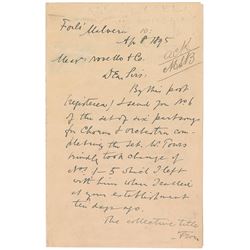 Forli Malvern
Ap 8 1895
Messrs Novello & Co.
Dear Sirs.
By this post
(registered) I send you No 6
of the set of six partsongs
for Chorus & orchestra com-
pleting the set. Mr Tours
kindly took charge of
Nos 1 – 5 which I left
with him when I called
at your establishment
ten days ago.
The collective title